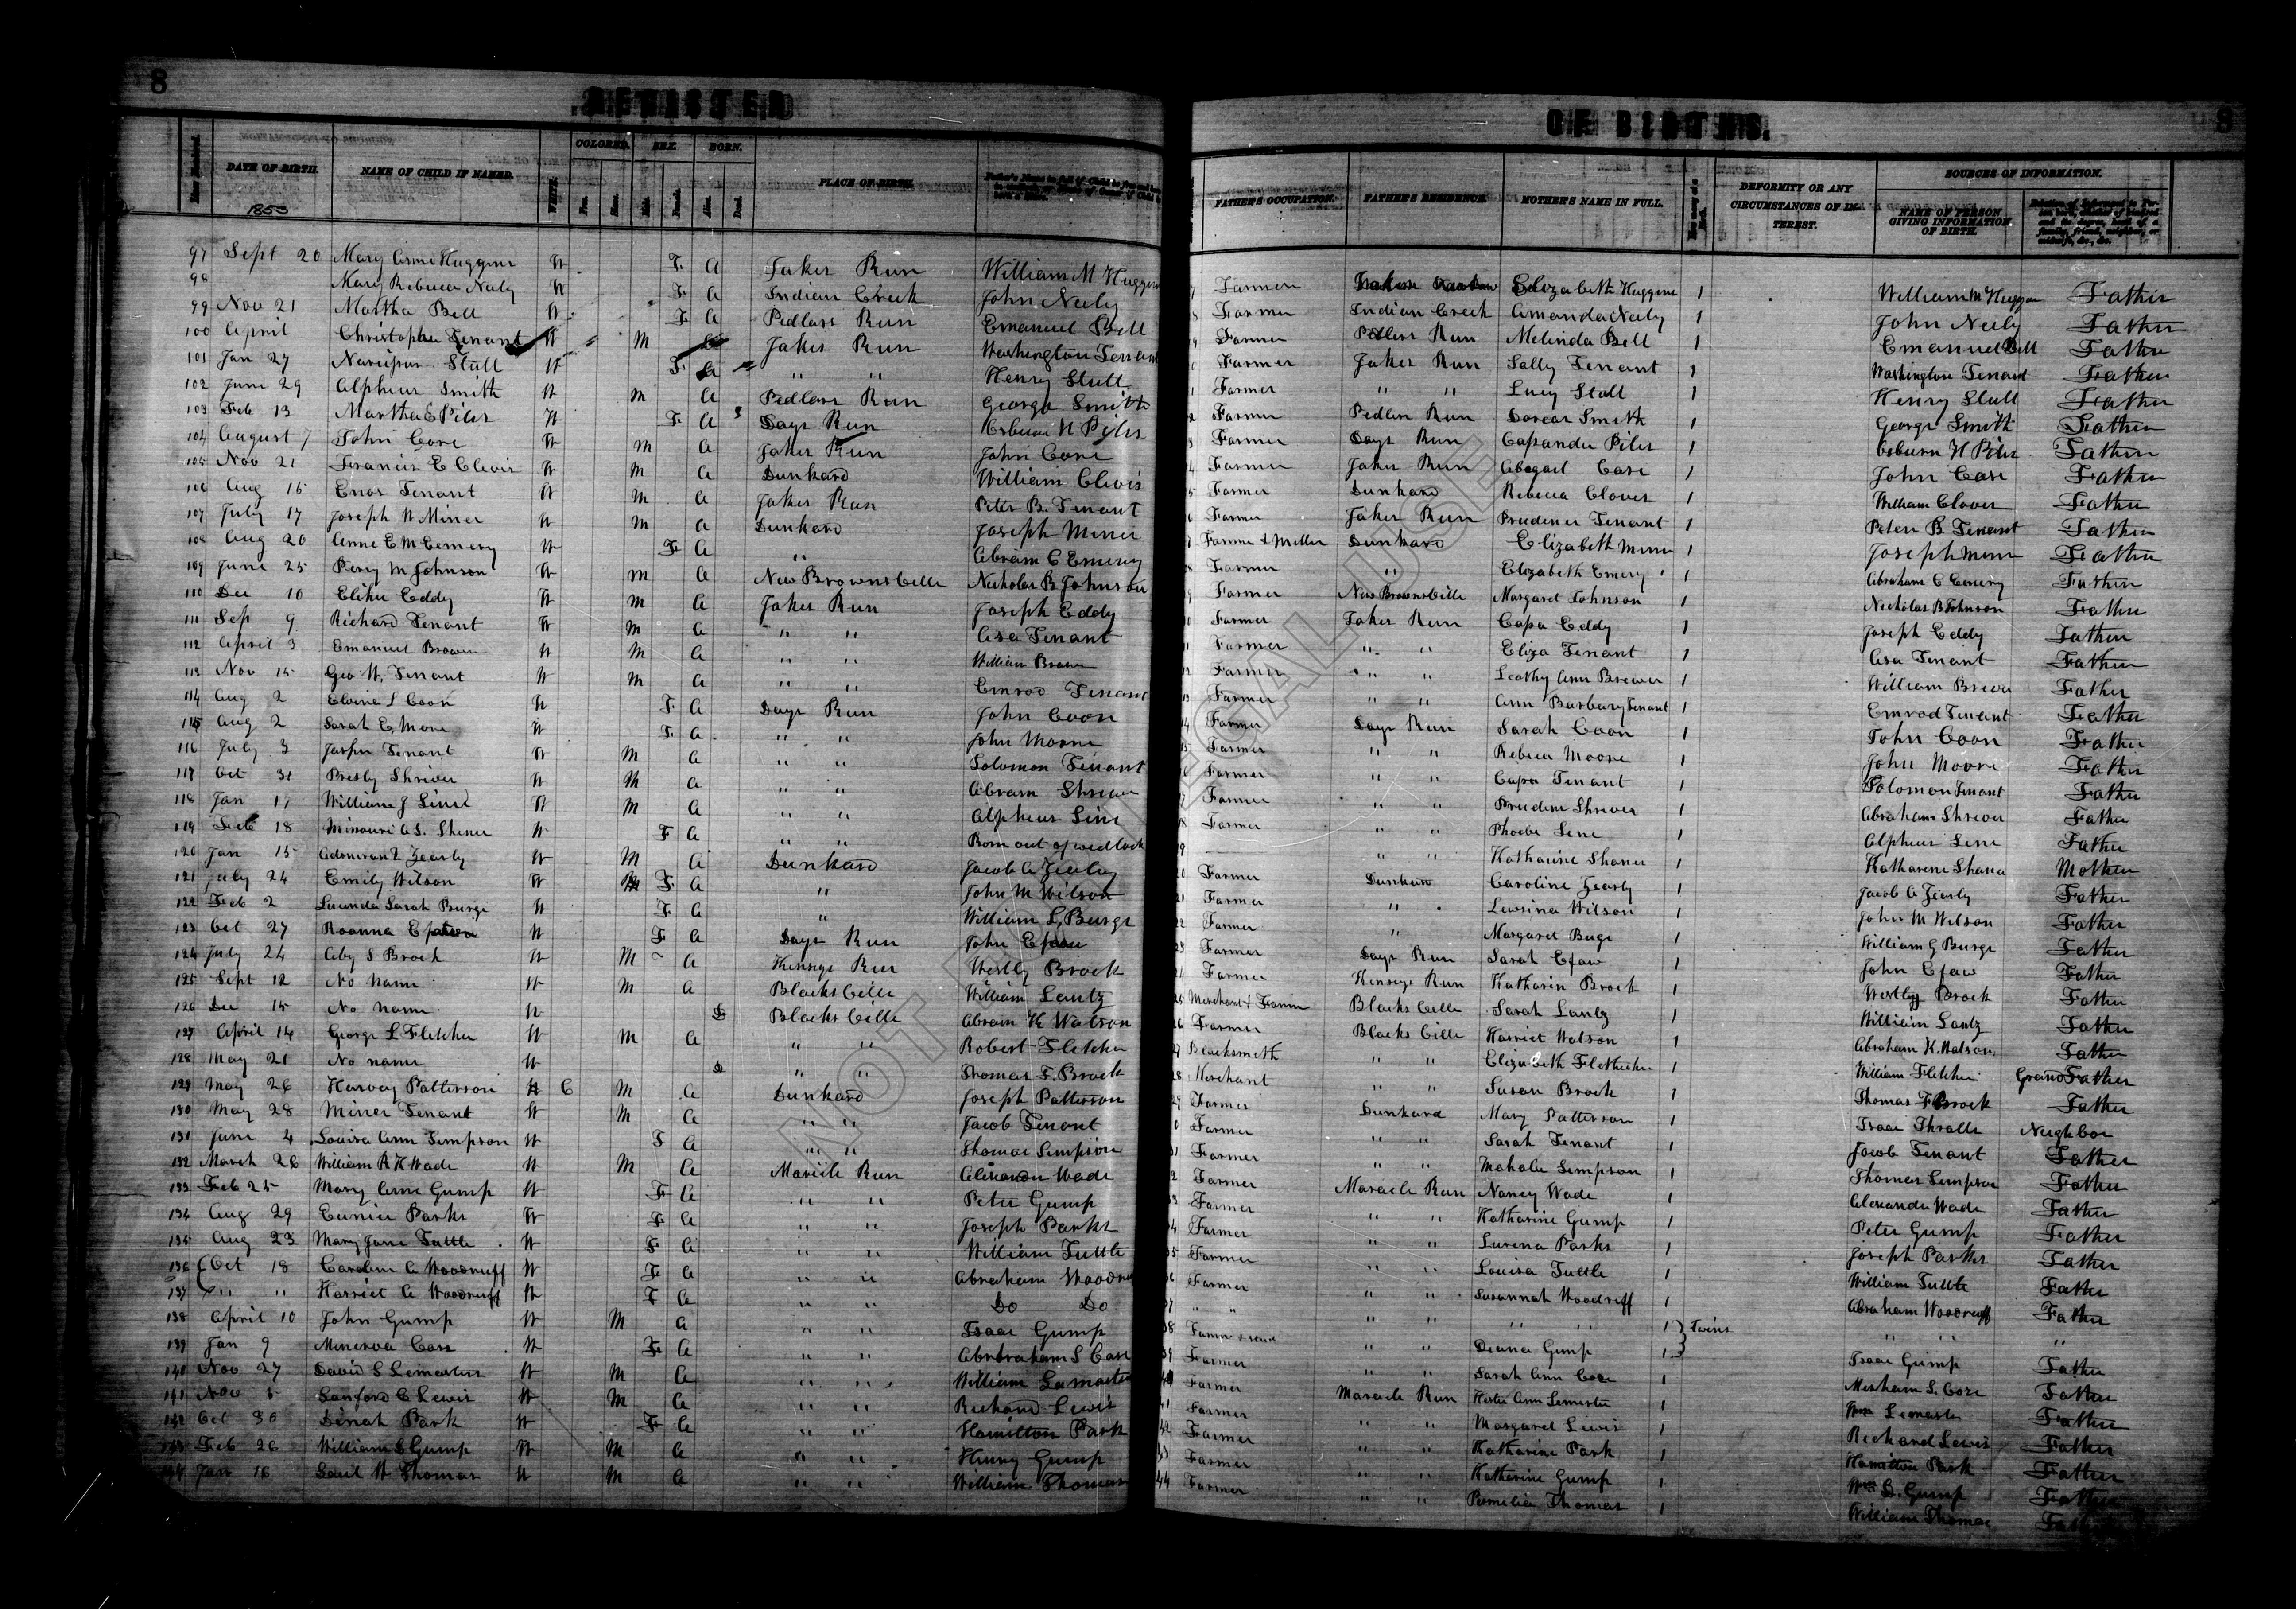 8
REGISTER
OF BIRTHS.
8
DATE OF BIRTH. NAME OF CHILD IF NAMED. WHITE. COLORED. SEX. BORN. PLACE OF BIRTH. FATHER'S OCCUPATION. FATHER'S RESIDENCE. MOTHER'S NAME IN FULL. DEFORMITY OR ANY CIRCUMSTANCES OF INTEREST. SOURCES OF INFORMATION. NAME OF PERSON GIVING INFORMATION OF BIRTH.
1853
97 Sept 20 Mary Anne Huggins W F A Jakes Run William M Huggins Farmer Elizabeth Huggins 1 William M Huggans Father
98 Mary Rebecca Neely W F A Indian Creek John Neely Farmer Indian Creek Amanda Neely 1 John Neely Father
99 Nov 21 Martha Bell W F A Pedlars Run Emanuel Bell Farmer Pedlers Run Melinda Bell 1 Emanuel Bell Father
100 April Christopher Tenant W M A Jakes Run Washington Tenant Farmer Jakes Run Sally Tenant 1 Washington Tenant Father
101 Jan 27 Stull W F A " " Henry Stull Farmer " " Lucy Stull 1 Henry Stull Father
102 June 29 Alpheus Smith W M A Pedlars Run George Smith Farmer Pedlars Run Dorcas Smith 1 George Smith Father
103 Feb 13 Martha E Piles W F A Days Run Osburn H Pyles Farmer Days Run Casander Piles 1 Osburn H Piles Father
104 August 7 John Core W M A Jakes Run John Core Farmer Jakes Run Abagail Core 1 John Core Father
105 Nov 21 Francis E Clovis W M A Dunkard William Clovis Farmer Dunkard Rebecca Clover 1 William Clover Father
106 Aug 15 Enos Tenant W M A Jakes Run Peter B. Tenant Farmer Jakes Run Prudence Tenant 1 Peter B Tenant Father
107 July 17 Joseph W Miner W M A Dunkard Joseph Miner Farmer & Miller Dunkard Elizabeth Miner 1 Joseph Miner Father
108 Aug 20 Anne E M Emery W F A " Abram C Emery Farmer " Elizabeth Emery 1 Abraham C Emery Father
109 June 25 Percy M Johnson W M A New Brownsville Nicholas B Johnson Farmer New Brownsville Margaret Johnson 1 Nicholas B Johnson Father
110 Dec 10 Elihu Eddy W M A Jakes Run Joseph Eddy Farmer Jakes Run Casa Eddy 1 Joseph Eddy Father
111 Sep 9 Richard Tenant W M A " " Asa Tenant Farmer " " Eliza Tenant 1 Asa Tenant Father
112 April 3 Emanuel Brown W M A " " William Brown Farmer " " Leathy Ann Brewer 1 William Brewer Father
113 Nov 15 Geo W, Tenant W M A " " Emrod Tenant Farmer " " Ann Barbary Tenant 1 Emrod Tenant Father
114 Aug 2 Elvina L Coon W F A Days Run John Coon Farmer Days Run Sarah Coon 1 John Coon Father
115 Aug 2 Sarah E, More W F A " " John Moore Farmer " " Rebecca Moore 1 John Moore Father
116 July 3 Jasper Tenant W M A " " Solomon Tenant Farmer " " Casa Tenant 1 Solomon Tenant Father
117 Oct 31 Presly Shriver W M A " " Abram Shriver Farmer " " Prudence Shriver 1 Abraham Shriver Father
118 Jan 17 William J Sine W M A " " Alpheus Sine Farmer " " Phoebe Sine 1 Alpheus Sine Father
119 Feb 18 Missouri A S. W F A " " Born out of wedlock " " Katharine Shaner 1 Mother
120 Jan 15 Adoniran Zearly W M A Dunkard Farmer Dunkard Caroline Zearly 1 Jacob A Zearly Father
121 July 24 Emily Wilson W F A " John M Wilson Farmer " Lewsina Wilson 1 John M Wilson Father
122 Feb 2 Lucinda Sarah Burge W F A " William L, Burge Farmer " Margaret Buge 1 William G Burge Father
123 Oct 27 Roanna W F A Days Run John Farmer Days Run Sarah Efaw 1 John Efaw Father
124 July 24 Aby S Brock W M A Kinseys Run Westly Brock Farmer Kenseys Run Katharin Brock 1 Westly Brock Father
125 Sept 12 No name W M A Blacksville William Lantz Merchant & Farmer Blacksville Sarah Lantz 1 William Lantz Father
126 Dec 15 No name W D Blacksville Abram H Watson Farmer Blacksville Harriet Watson 1 Abraham H. Watson Father
127 April 14 George L Fletcher W M A " " Robert Fletcher Blacksmith " " Elizabeth 1 William Fletcher Grand Father
128 May 21 No name W D " " Thomas F. Brock Merchant " " Susan Brock 1 Thomas F Brock Father
129 May 26 Harvey Patterson C M A Dunkard Joseph Patterson Farmer Dunkard Mary Patterson 1 Isaac Thralls Neighbor
130 May 28 Miner Tenant W M A " " Jacob Tenant Farmer " " Sarah Tenant 1 Jacob Tenant Father
131 June 4 Louisa Ann Simpson W F A " " Thomas Simpson Farmer " " Mahala Simpson 1 Thomas Simpson Father
132 March 26 William R H Wade W M A Maricle Run Alexander Wade Farmer Maracle Run Nancy Wade 1 Alexander Wade Father
133 Feb 25 Mary Anne Gump W F A " " Peter Gump Farmer " " Katharine Gump 1 Peter Gump Father
134 Aug 29 Eunice Parks W F A " " Joseph Parks Farmer " " Lurena Parks 1 Joseph Parks Father
135 Aug 23 Mary Jane Tuttle W F A " " William Tuttle Farmer " " Louisa Tuttle 1 William Tuttle Father
136 Oct 18 Caroline A Woodruff W F A " " Abraham Woodruff Farmer " " Susannah Woodruff 1 Twins Abraham Woodruff Father
137 " " Harriet A Woodruff W F A " " Do Do " " " " " " 1 " " "
138 April 10 John Gump W M A " " Isaac Gump " " Diana Gump 1 Isaac Gump Father
139 Jan 9 Minerva Core W F A " " Abrabraham S Core Farmer " " Sarah Ann Core 1 Father
140 Nov 27 David S Lemasters W M A " " William Lamasters Farmer Maracle Run Hester Ann Lemaster 1 Wm Lemaster Father
141 Nov 5 Sanford C Lewis W M A " " Richard Lewis Farmer " " Margaret Lewis 1 Richard Lewis Father
142 Oct 30 Dinah Park W F A " " Hamilton Park Farmer " " Katharine Park 1 Hamilton Park Father
143 Feb 26 William S Gump W M A " " Henry Gump Farmer " " Katherine Gump 1 Gump Father
144 Jan 16 Saul W Thomas W M A " " William Thomas Farmer " " Pamelia Thomas 1 William Thomas Father
NOT FOR LEGAL USE